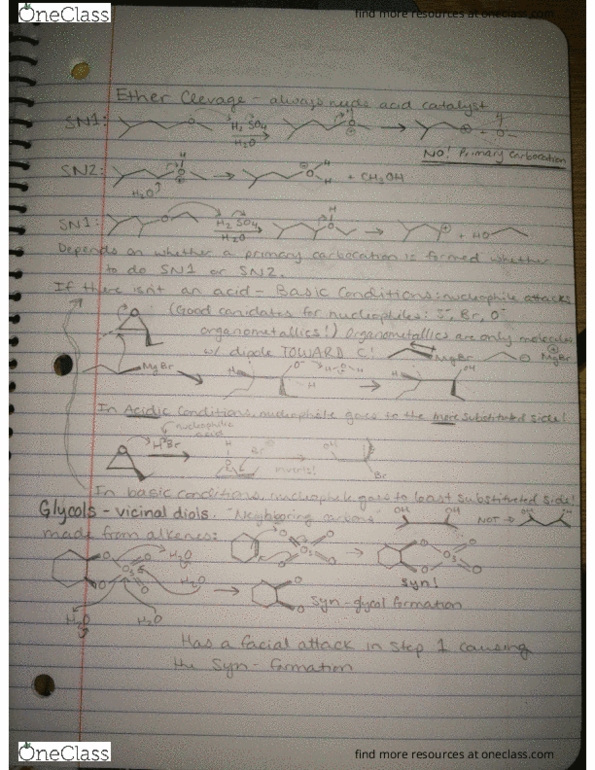 OneClass
find more resources at oneclass.com
Ether Clevage - always needs acid catalyst
SN1:
H2SO4
H2O
NO! Primary carbocation
SN2:
H2O
+ CH3OH
SN1:
H2SO4
H2O
+ HO
Depends on whether a primary carbocation is formed whether
to do SN1 or SN2.
If there isn't an acid - Basic Conditions: nucleophile attacks
(Good canidates for nucleophiles: S⁻, Br, O⁻
organometallics!) Organometallics are only molecules
w/ dipole TOWARD C!
MgBr
MgBr
MgBr
In Acidic Conditions, nucleophile goes to the more substituted side!
nucleophilic
acid
HBr
inverts!
Br
In basic conditions, nucleophile goes to least substituted side!
Glycols - vicinal diols. "Neighboring carbons"
OH
OH
NOT →
made from alkenes:
H2O
H2O
H2O
H2O
Syn!
Syn-glycol formation
Has a facial attack in step 1 causing
the Syn-formation
OneClass
find more resources at oneclass.com